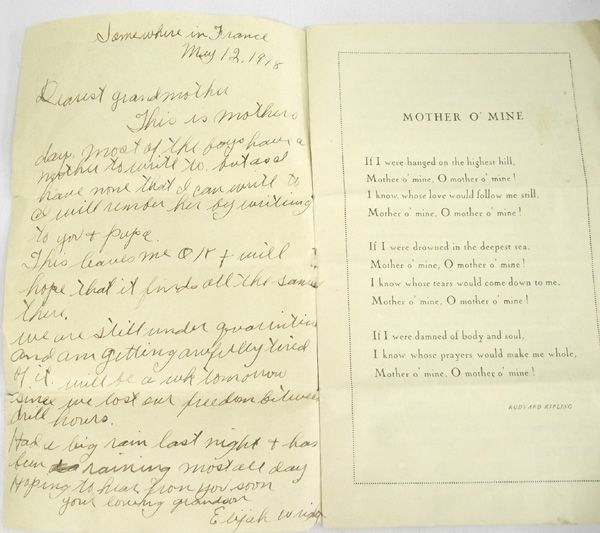 Somewhere in France
May 12, 1918
Dearest grandmother
This is mothers
day, most of the boys have a
mother to write to. but as I
have none that I can write to
I will rember her by writing
to you + Papa.
This leaves me O K + will
hope that it finds all the same
there.
we are still under
and am getting awfully tired
of it. will be a wk tomorrow
since we lost our freedom between
drill hours.
Had a big rain last night + has
been raining most all day
Hoping to hear from you soon
your loving grandson
Elijah
MOTHER O' MINE
If I were hanged on the highest hill,
Mother o' mine, O mother o' mine!
I know whose love would follow me still,
Mother o' mine, O mother o' mine!
If I were drowned in the deepest sea,
Mother o' mine, O mother o' mine!
I know whose tears would come down to me,
Mother o' mine, O mother o' mine!
If I were damned of body and soul,
I know whose prayers would make me whole,
Mother o' mine, O mother o' mine!
RUDYARD KIPLING